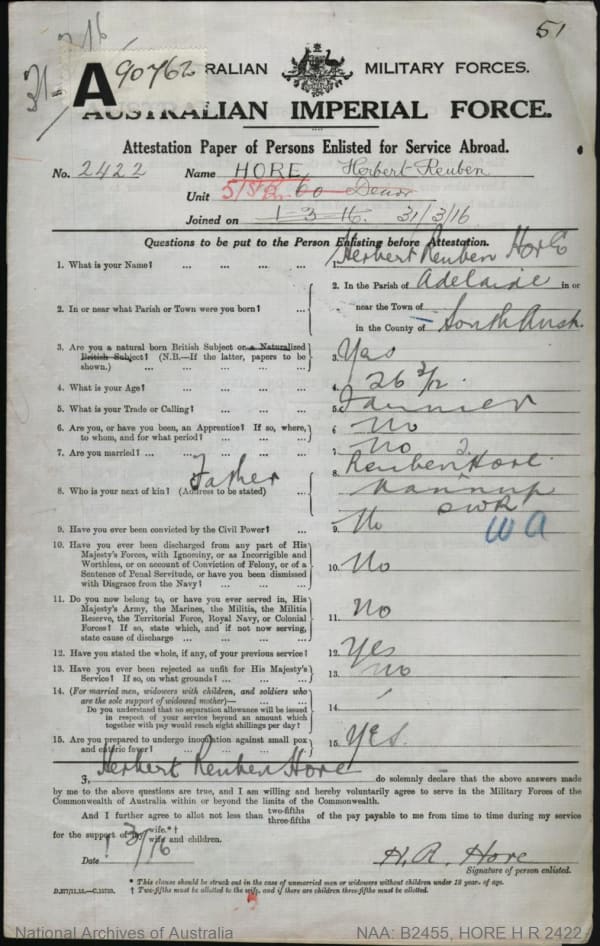 51
A 90762
RALIAN MILITARY FORCES.
AUSTRALIAN IMPERIAL FORCE.
Attestation Paper of Persons Enlisted for Service Abroad.
No. 2422 Name HORE Herbert Reuben
Unit
Joined on 1-3-16. 31/3/16
Questions to be put to the Person Enlisting before Attestation.
1. What is your Name? ... ... ... ... 1. Herbert Reuben Hore
2. In or near what Parish or Town were you born? ... 2. In the Parish of Adelaide in or
near the Town of
in the County of South Aust.
3. Are you a natural born British Subject or a Naturalized
British Subject? (N.B.—If the latter, papers to be
shown.) ... ... ... ... ... 3. Yes
4. What is your Age? ... ... ... ... 4. 26 3/12.
5. What is your Trade or Calling? ... ... ... 5. Farmer
6. Are you, or have you been, an Apprentice? If so, where,
to whom, and for what period? ... ... ... 6 No
7. Are you married? ... ... ... ... 7. No
Father
8. Who is your next of kin? (Address to be stated) ... 8. Reuben Hore.
Nannup
SWR
WA
9. Have you ever been convicted by the Civil Power? ... 9. No
10. Have you ever been discharged from any part of His
Majesty's Forces, with Ignominy, or as Incorrigible and
Worthless, or on account of Conviction of Felony, or of a
Sentence of Penal Servitude, or have you been dismissed
with Disgrace from the Navy? ... ... ... 10. No
11. Do you now belong to, or have you ever served in, His
Majesty's Army, the Marines, the Militia, the Militia
Reserve, the Territorial Force, Royal Navy, or Colonial
Forces? If so, state which, and if not now serving,
state cause of discharge ... ... ... ... 11. No
12. Have you stated the whole, if any, of your previous service? 12. Yes
13. Have you ever been rejected as unfit for His Majesty's
Service? If so, on what grounds? ... ... ... 13. no
14. (For married men, widowers with children, and soldiers who
are the sole support of widowed mother)—
Do you understand that no separation allowance will be issued
in respect of your service beyond an amount which
together with pay would reach eight shillings per day? 14.
15. Are you prepared to undergo inoculation against small pox
and enteric fever? ... ... ... ... 15. Yes.
I, Herbert Reuben Hore do solemnly declare that the above answers made
by me to the above questions are true, and I am willing and hereby voluntarily agree to serve in the Military Forces of the
Commonwealth of Australia within or beyond the limits of the Commonwealth.
And I further agree to allot not less than two-fifths three-fifths of the pay payable to me from time to time during my service
for the support of my wife.*† wife and children.
Date 1/3/16
H. R. Hore
Signature of person enlisted.
* This clause should be struck out in the case of unmarried men or widowers without children under 18 year. of age.
† Two-fifths must be allotted to the wife, and if there are children three-fifths must be allotted.
National Archives of Australia NAA: B2455, HORE H R 2422